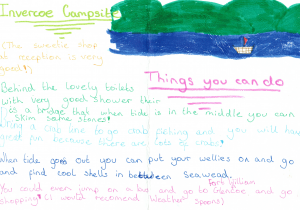 Invercoe Campsite
(The sweetie shop
at reception is very
good!)
Things you can do
Behind the lovely toilets
with very good shower their
is a bridge that when tide is in the middle you can
skim some stones!
Bring a crab line to go crab picking and you will have
great fun because there are lots of crabs!
When tide goes out you can put your wellies on and go
and find cool shells in between seawead.
You could even jump on a bus and go to Glencoe and go
Fort William
shopping (I would recomend Weather spoons)